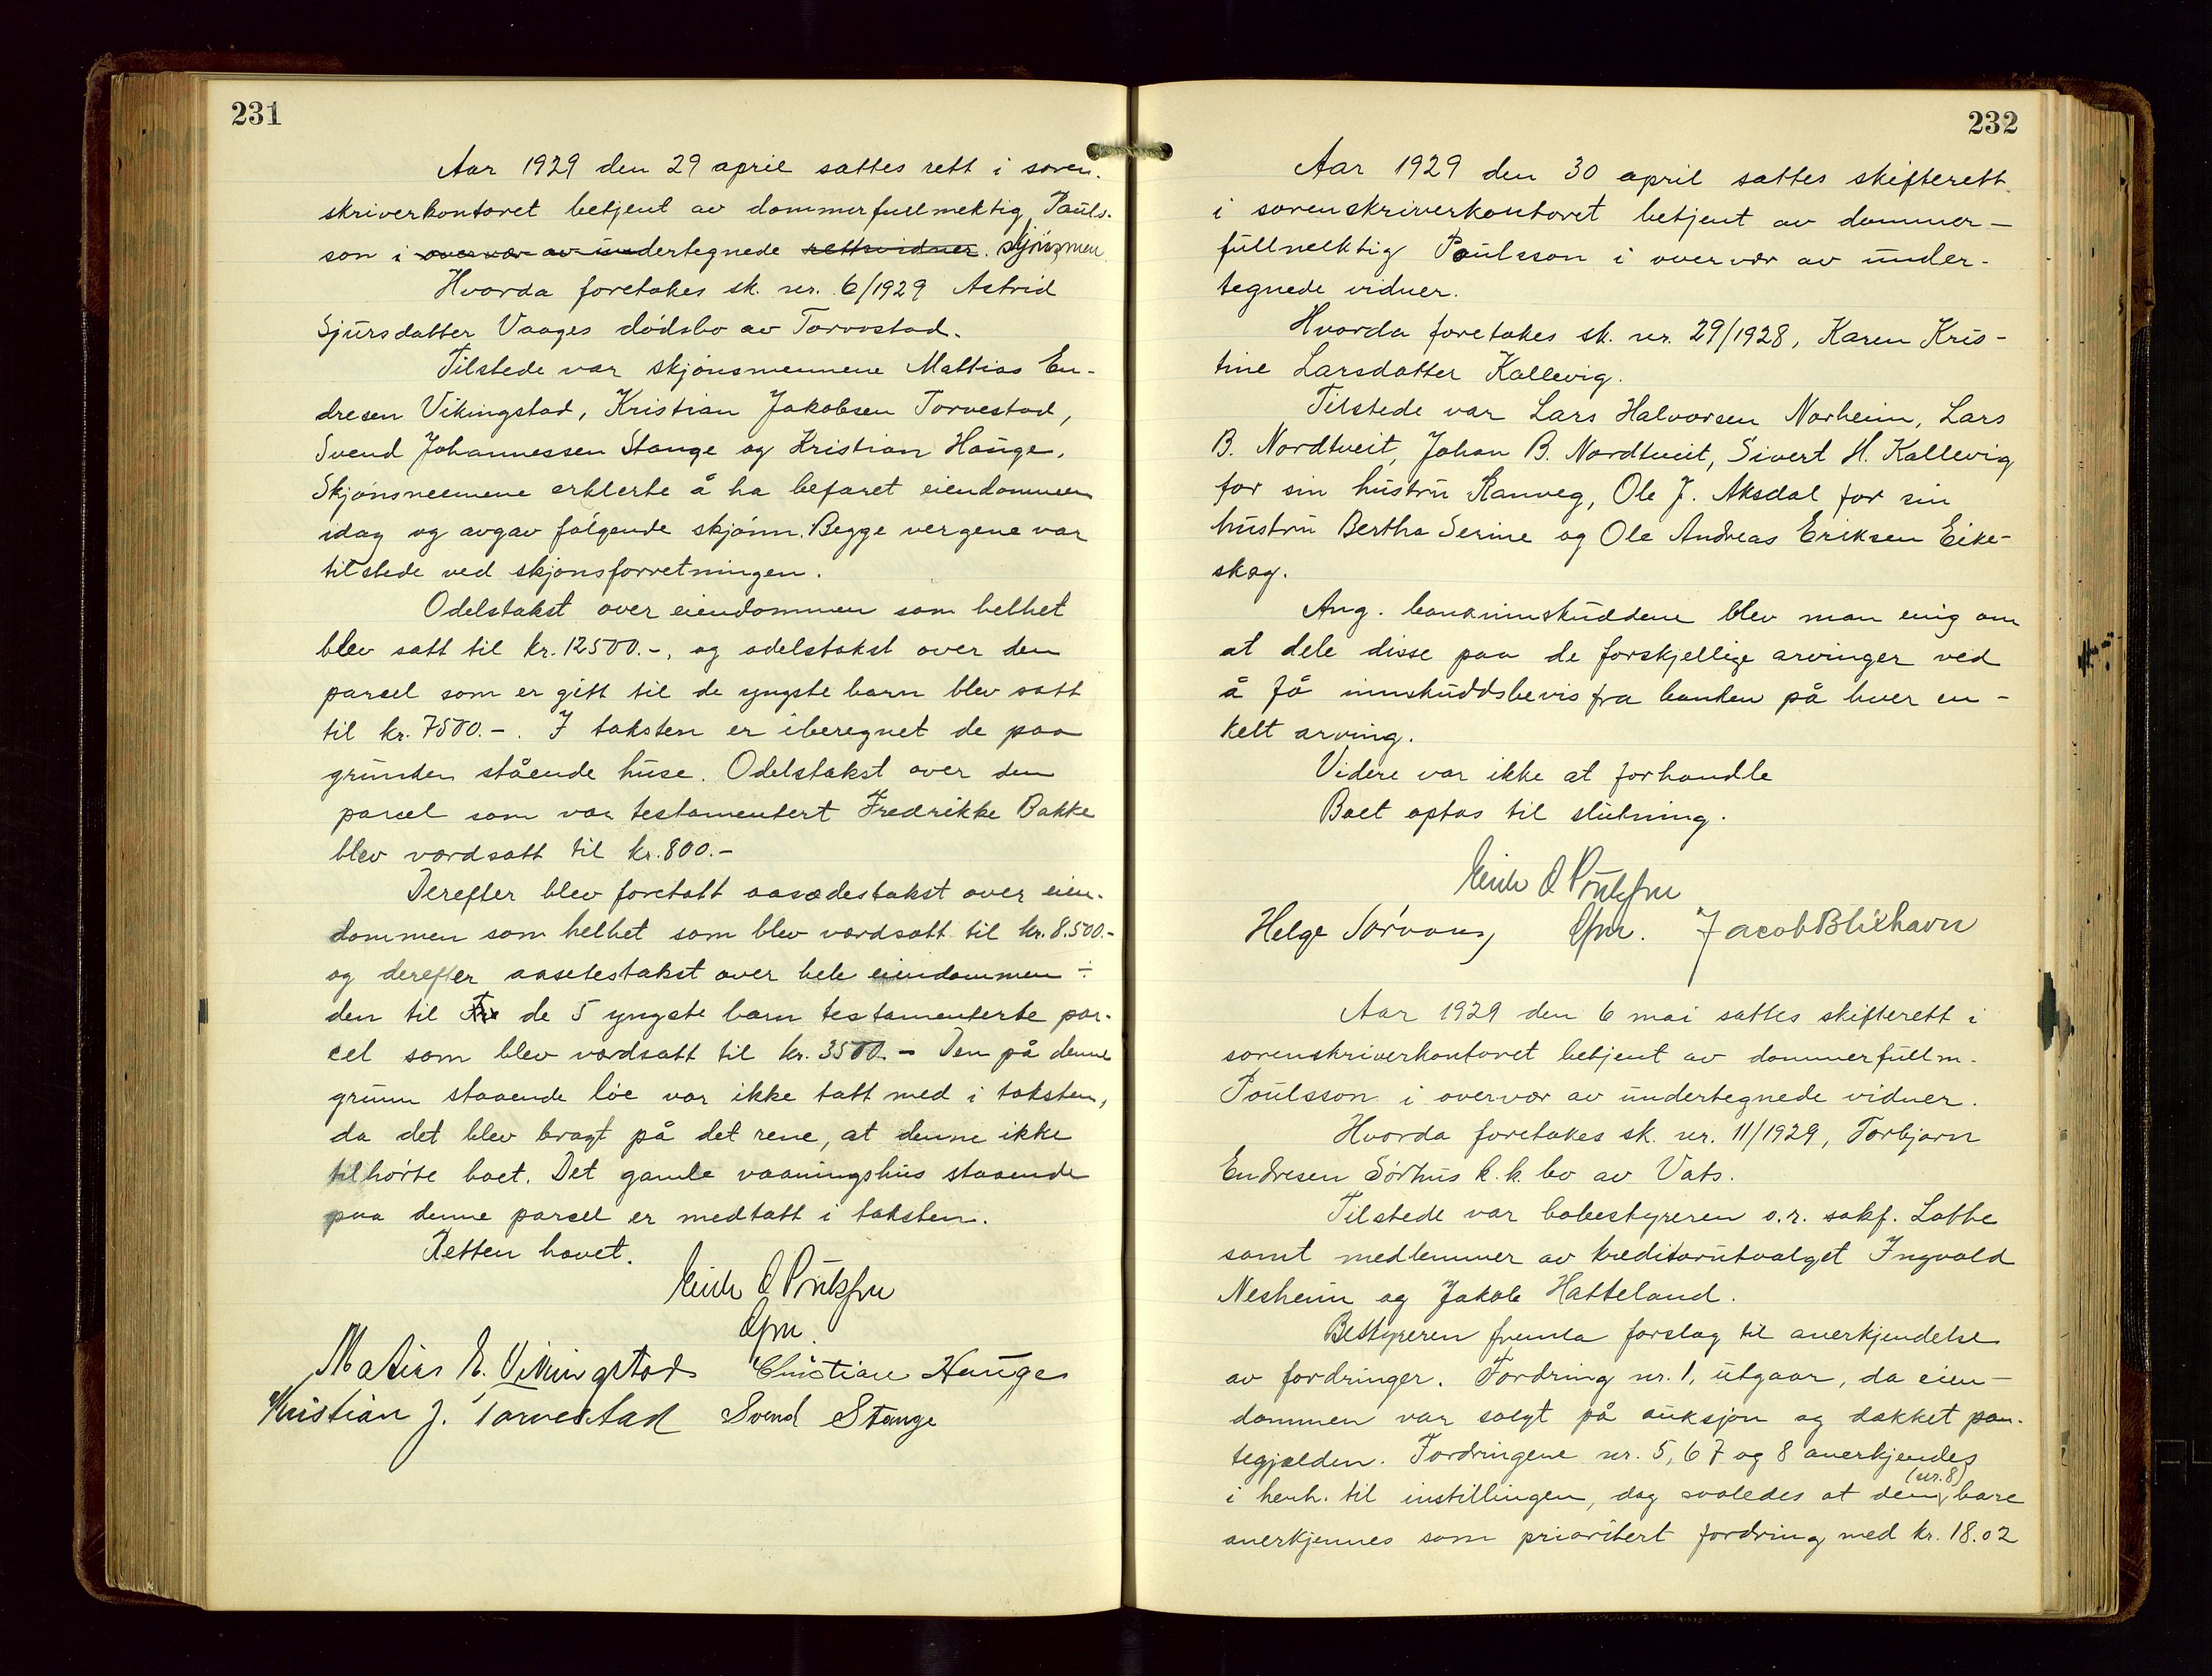 231
Aar 1929 den 29 april sattes rett i soren-
skriverkontoret betjent av dommerfullmektig Pauls-
son i overvær av undertegnede rettsvidner. skjönsmen
Hvorda foretakes sk. nr. 6/1929 Astrid
Sjursdatter Vaages dödsbo av Torvestad.
Tilstede var skjönsmennene Mattias En-
dresen Vikingstad, Kristian Jakobsen Torvestad,
Svend Johannessen Stange og Kristian Hauge.
Skjönsmennene erklerte å ha befaret eiendommen
idag og avgav fölgende skjönn. Begge vergene var
tilstede ved skjonsforretningen.
Odelstakst over eiendommen som helhet
blev satt til kr. 12500.-, og odelstakst over den
parsel som er gitt til de yngste barn blev satt
til kr. 7500.-. I taksten er iberegnet de paa
grunden stående huse. Odelstakst over den
parcel som var testamentert Fredrikke Bakke
blev værdsatt til kr. 800.-
Derefter blev foretatt aasædestakst over eien-
dommen som helhet som blev værdsatt til kr. 8.500.-
og derefter aasetestakst over hele eiendommen ÷
den til de 5 yngste barn testamenterte par-
cel som blev værdsatt til kr. 3500.- Den på denne
grunn staaende löe var ikke tatt med i taksten,
da det blev bragt på det rene, at denne ikke
tilhörte boet. Det gamle vaaningshus staaende
paa denne parsel er medtatt i taksten.
Retten hævet.
Dfm.
Matias E. Vikingstad Christian Hauge
Kristian J. Torvestad Svend Stange
232
Aar 1929 den 30 april sattes skifterett
i sorenskriverkontoret betjent av dommer-
fullmektig Poulsson i overvær av under-
tegnede vidner.
Hvorda foretakes sk. nr. 29/1928, Karen Kris-
tine Larsdatter Kallevig.
Tilstede var Lars Halvorsen Norheim, Lars
B. Nordtveit, Johan B. Nordtveit, Sivert H. Kallevig
for sin hustru Ranveg, Ole J. Aksdal for sin
hustru Bertha Serine og Ole Andreas Eriksen Eike-
skog.
Ang. bankinnskuddene blev man enig om
at dele disse paa de forskjellige arvinger ved
å få innskuddsbevis fra banken på hver en-
kelt arving.
Videre var ikke at forhandle
Boet optas til slutning.
Helge Sørvaag Dfm. Jacob Blikhavn
Aar 1929 den 6 mai sattes skifterett i
sorenskriverkontoret betjent av dommerfullm.
Poulsson i overvær av undertegnede vidner.
Hvorda foretakes sk. nr. 11/1929, Torbjørn
Endresen Sörhus k. k. bo av Vats.
Tilstede var bobestyreren o.r. sakf. Lothe
samt medlemmer av kreditorutvalget Ingvald
Nesheim og Jakob Hatteland.
Bestyreren fremla forslag til anerkjendelse
av fordringer. Fordring nr. 1, utgaar, da eien-
dommen var solgt på auksjon og dækket pan-
tegjælden. Fordringene nr. 5, 6 7 og 8 anerkjendes
i henh. til instillingen, dog saaledes at den (nr. 8) bare
anerkjennes som prioritert fordring med kr. 18.02